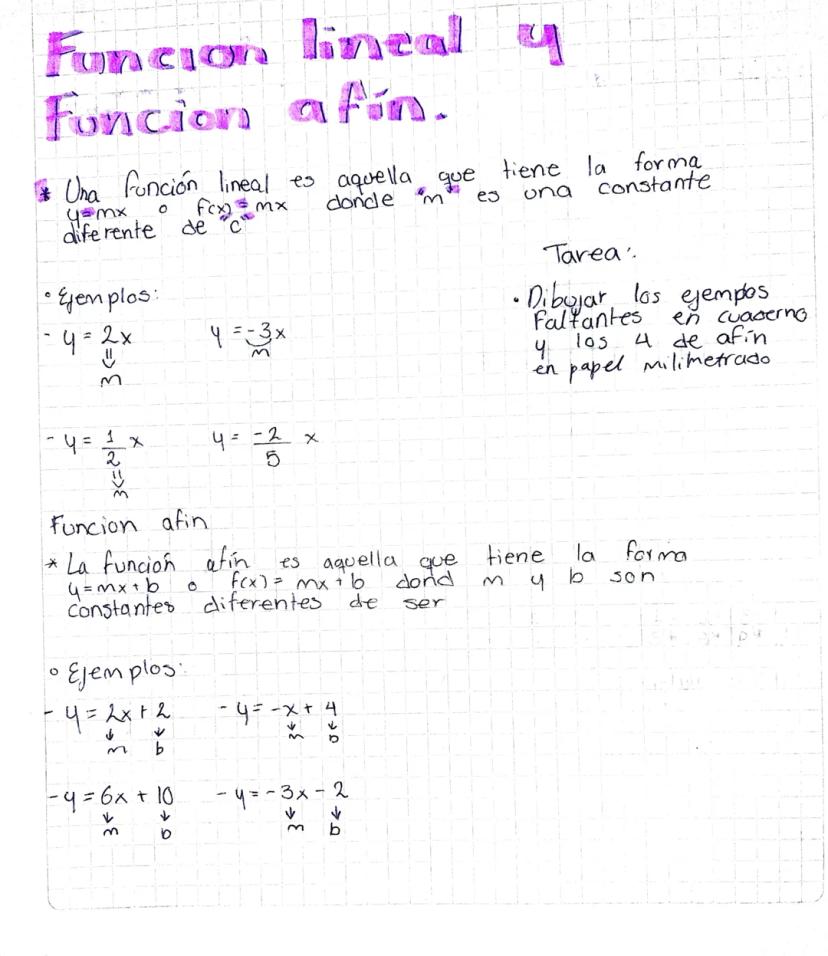 Funcion lineal y
Funcion afín.
* Una función lineal es aquella que tiene la forma
y=mx o f(x)=mx donde "m" es una constante
diferente de "c"
Tarea:
• Dibujar los ejempos
faltantes en cuaderno
y los 4 de afín
en papel milimetrado
° Ejemplos:
- y = 2x y = -3x
m m
- y = 1/2 x y = -2/5 x
m
Funcion afin
* La función afín es aquella que tiene la forma
y=mx+b o f(x)=mx+b dond m y b son
constantes diferentes de ser
° Ejemplos:
- y = 2x+2 - y = -x + 4
m b m b
- y = 6x + 10 - y = -3x - 2
m b m b